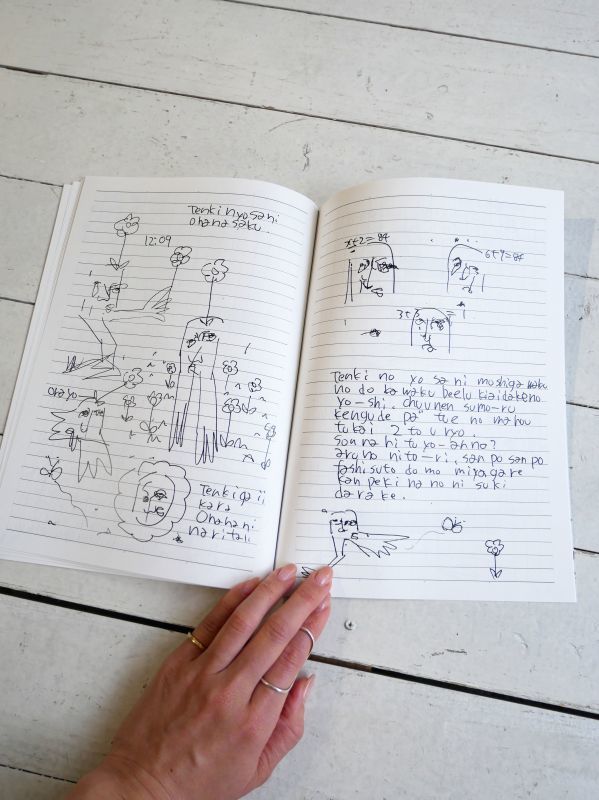 Tenki nyosani
ohanasaku.
12:09
ohayo
Tenkiga ii
kara
Ohanani
naritai.
x+2=84
6+9=84
3+3
=1
Tenki no yo sa ni mushiga waku
no do kawaku beelu kiaidakeno
yo-shi. chuunen sumo-ru
kengude pa tue no mahou
tukai 2 to u ryo.
sonna hito yo-anna?
aruno nito-ri. sanposanpo
fashisuto domo miyagare
kanpeki na no ni suki
darake.